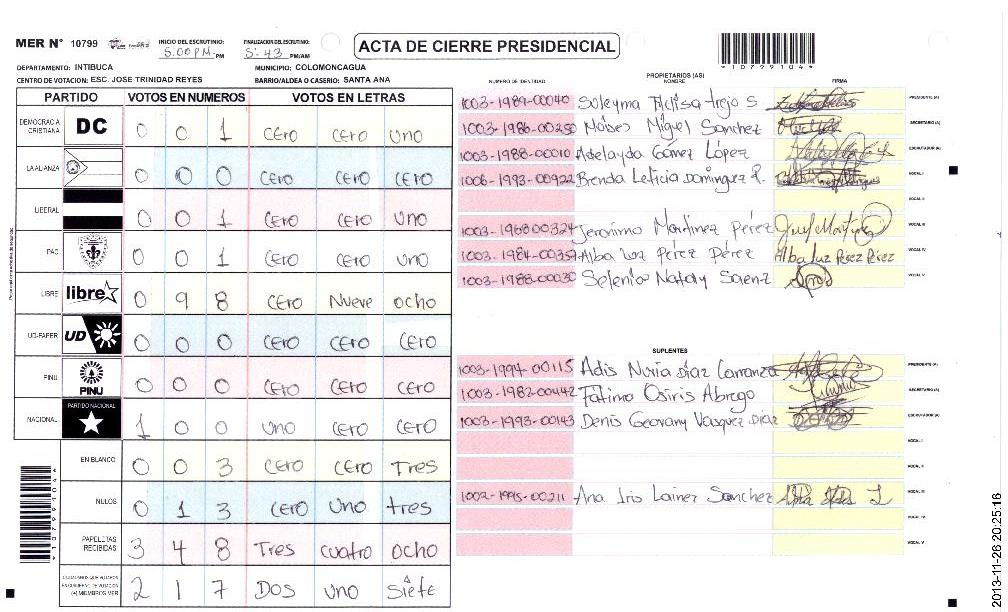 MER N° 10799 INICIO DEL ESCRUTINIO: 5:00PM PM FINALIZACION DEL ESCRUTINIO: 5:43 PM/AM ACTA DE CIERRE PRESIDENCIAL *10799104*
DEPARTAMENTO: INTIBUCA MUNICIPIO: COLOMONCAGUA
CENTRO DE VOTACION: ESC. JOSE TRINIDAD REYES BARRIO/ALDEA O CASERIO: SANTA ANA
PARTIDO VOTOS EN NUMEROS VOTOS EN LETRAS
DEMOCRACIA CRISTIANA DC 0 0 1 CERO CERO UNO
LA ALIANZA 0 0 0 CERO CERO CERO
LIBERAL 0 0 1 CERO CERO UNO
PAC 0 0 1 CERO CERO UNO
LIBRE libre 0 9 8 CERO Nueve ocho
UD-FAPER UD 0 0 0 CERO CERO CERO
PINU PINU 0 0 0 CERO CERO CERO
NACIONAL PARTIDO NACIONAL 1 0 0 UNO CERO CERO
EN BLANCO 0 0 3 CERO CERO Tres
NULOS 0 1 3 CERO UNO tres
PAPELETAS RECIBIDAS 3 4 8 Tres cuatro ocho
CIUDADANOS QUE VOTARON EN CUADERNO DE VOTACION (+) MIEMBROS MER 2 1 7 DOS UNO Siete
NUMERO DE IDENTIDAD PROPIETARIOS (AS) NOMBRE FIRMA
1003-1989-00040 Suleyma Trejo S PRESIDENTE (A)
1003-1986-00250 Moises Miguel Sanchez SECRETARIO (A)
1003-1988-00010 Adelayda Gómez López ESCRUTADOR (A)
1006-1993-00922 Brenda Leticia Dominguez R. VOCAL I
VOCAL II
1003-1968-00324 Jeronimo Martinez Pérez VOCAL III
1003-1984-00357 Alba Luz Pérez Pérez Alba Luz Perez Perez VOCAL IV
1003-1988-00030 Selenia Nataly Saenz VOCAL V
SUPLENTES
1003-1994-00115 Adis Nuria Díaz Carranza PRESIDENTE (A)
1003-1982-00442 Fatima Osiris Abrego SECRETARIO (A)
1003-1993-00143 Denis Geovany Vasquez Diaz ESCRUTADOR (A)
VOCAL I
VOCAL II
1002-1995-00211 Ana Iris Lainez Sanchez VOCAL III
VOCAL IV
VOCAL V
*10799104*
2013-11-26 20:25:16